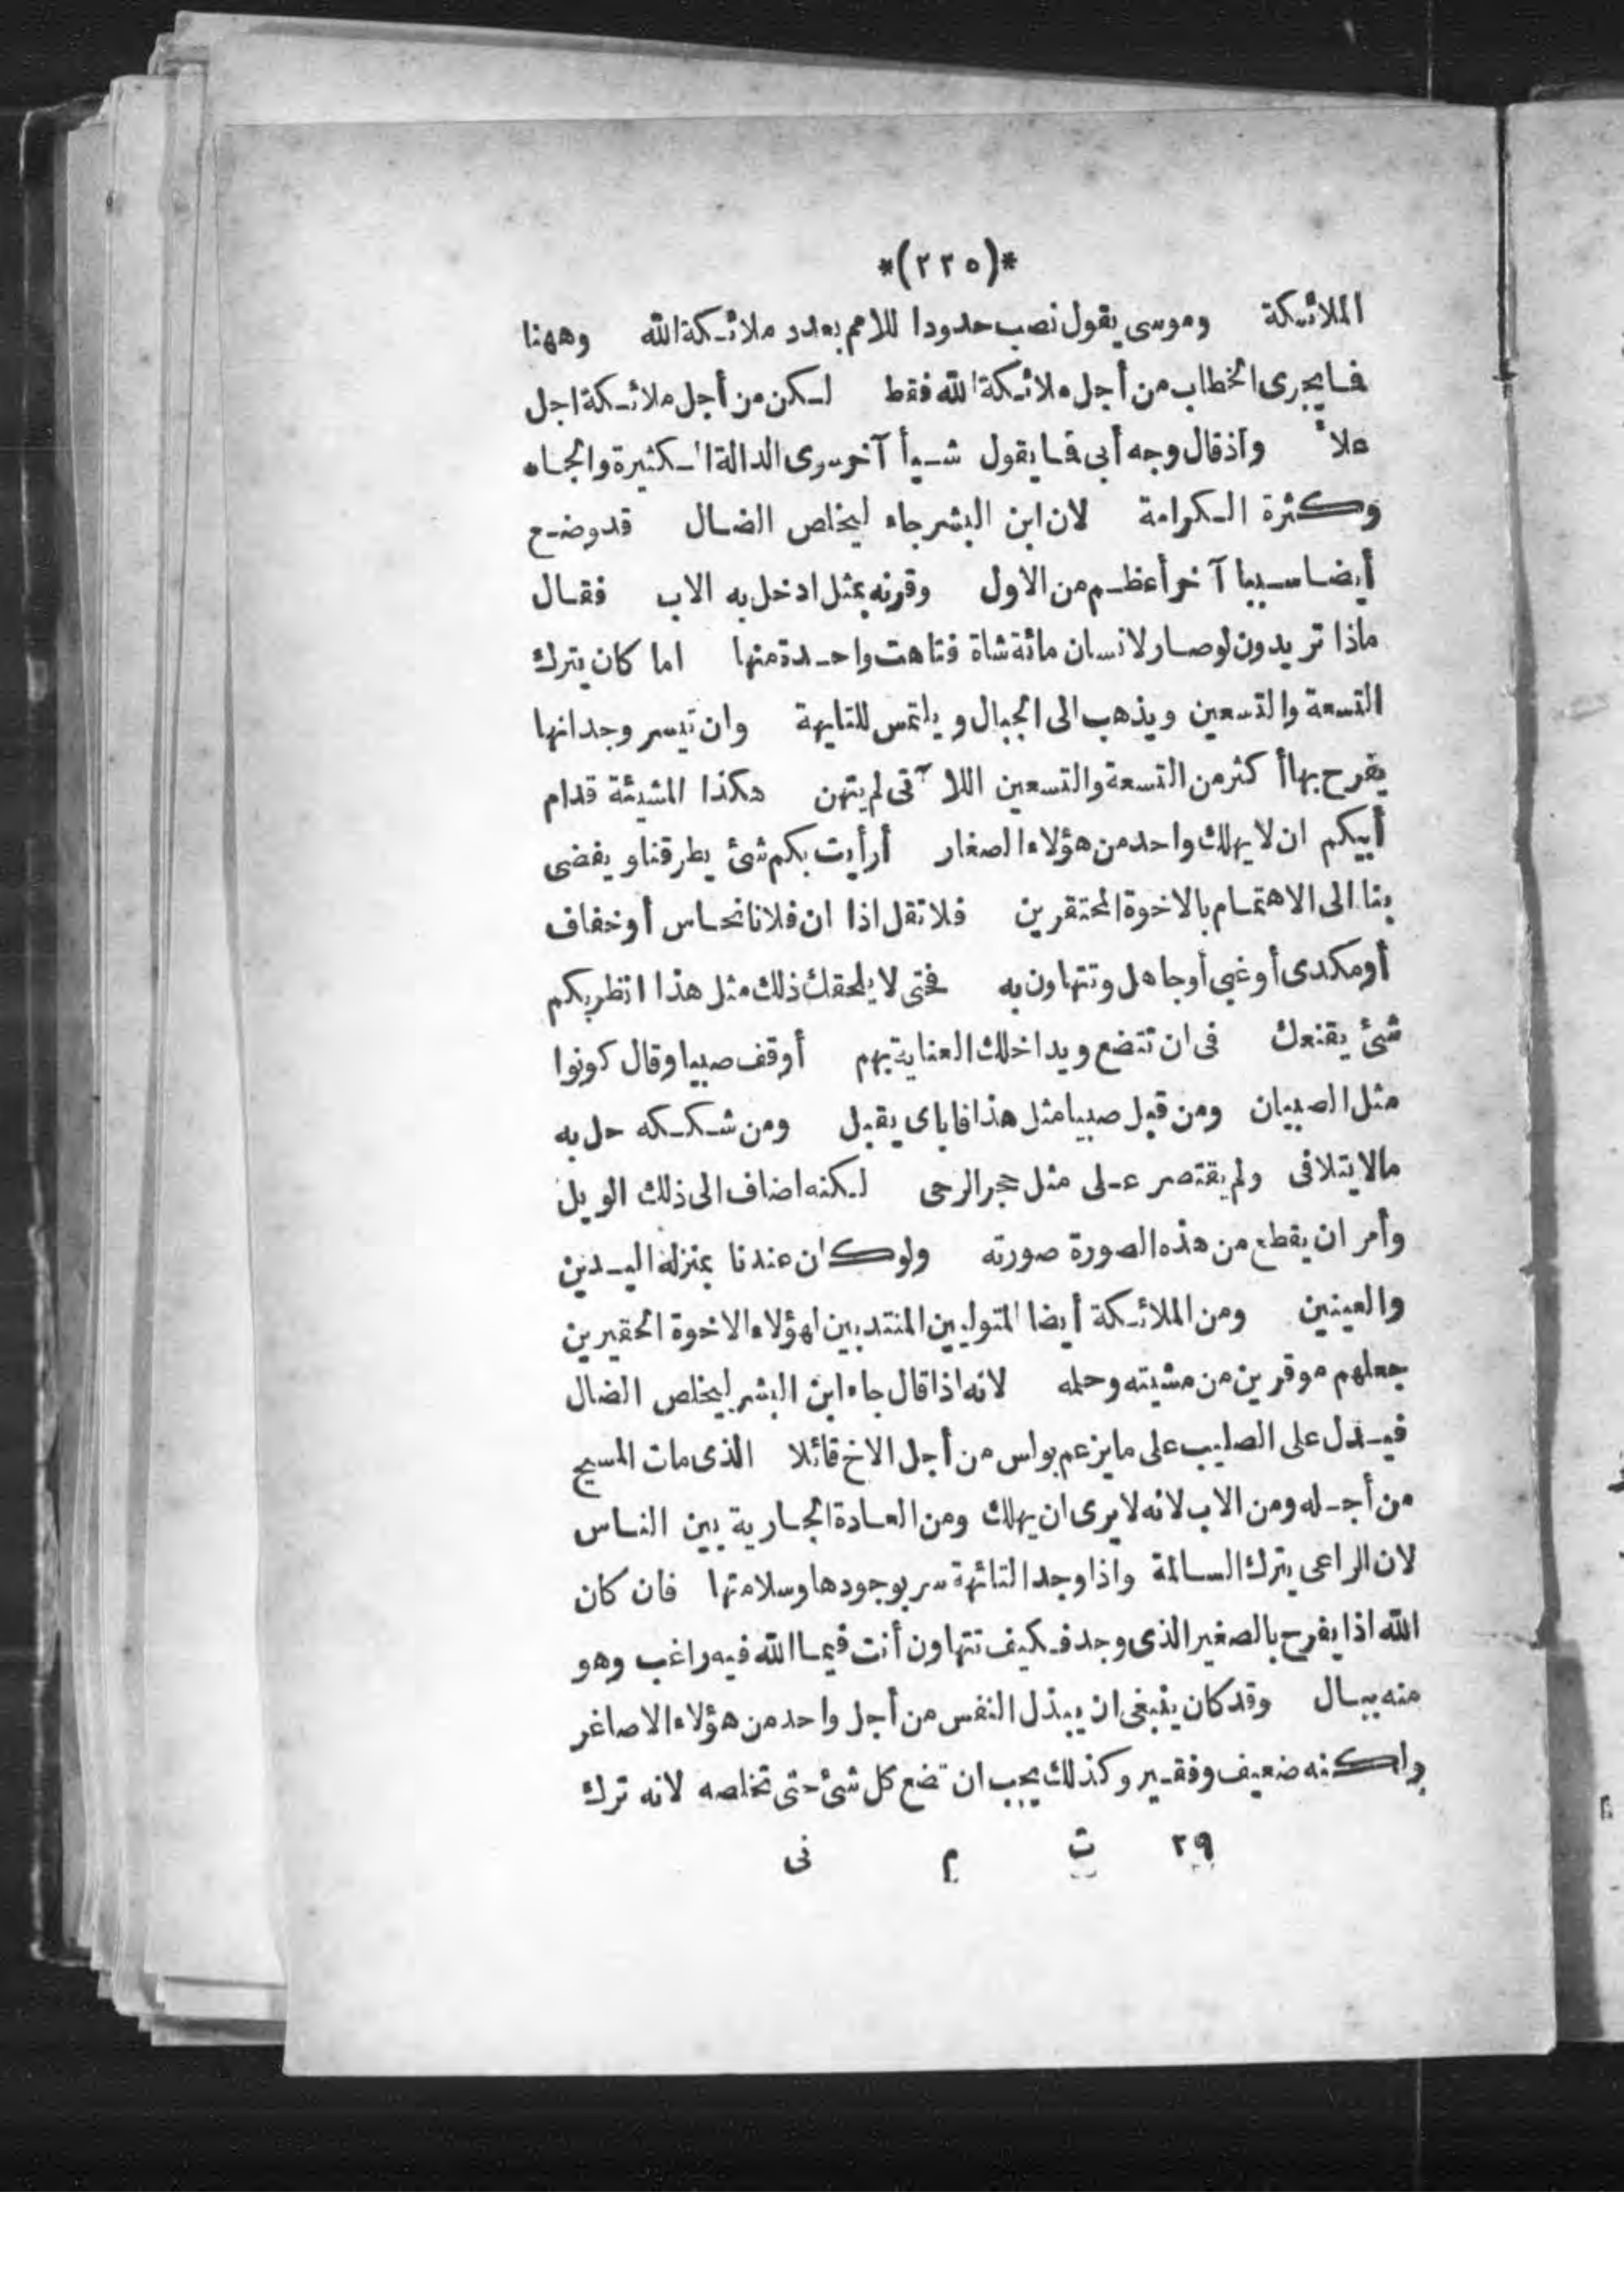 *(٢٢٥)*
الملائكة وموسى يقول نصب حدودا للامم بعدد ملائكة الله وههنا
فما يجرى الخطاب من أجل ملائكة الله فقط لكن من أجل ملائكة اجل
علاً واذ قال وجه أبى فما يقول شيأ آخر سوى الدالة الكثيرة والجاه
وكثرة الكرامة لان ابن البشر جاء ليخلص الضال قد وضع
أيضا سببا آخر أعظم من الاول وقرنه بمثل ادخل به الاب فقال
ماذا تريدون لو صار لانسان مائة شاة فتاهت واحدة منها اما كان يترك
التسعة والتسعين ويذهب الى الجبال ويلتمس للتايهة وان تيسر وجدانها
يفرح بها أكثر من التسعة والتسعين اللآتى لم يتهن هكذا المشيئة قدام
أبيكم ان لا يهلك واحد من هؤلاء الصغار أرأيت بكم شئ يطرقنا ويفضى
بنا الى الاهتمام بالاخوة المحتقرين فلا تقل اذا ان فلانا نحاس أو خفاف
أو مكدى أو غبى أو جاهل وتتهاون به فحتى لا يلحقك ذلك مثل هذا انظر بكم
شئ يقنعك فى ان تتضع ويداخلك العناية بهم أوقف صبيا وقال كونوا
مثل الصبيان ومن قبل صبيا مثل هذا فاياى يقبل ومن شككه حل به
مالا يتلافى ولم يقتصر على مثل حجر الرحى لكنه اضاف الى ذلك الويل
وأمر ان يقطع من هذه الصورة صورته ولو كان عندنا بمنزلة اليدين
والعينين ومن الملائكة أيضا المتوليين المنتدبين لهؤلاء الاخوة الحقيرين
جعلهم موقرين من مشيته وحمله لانه اذا قال جاء ابن البشر ليخلص الضال
فيدل على الصليب على ما يزعم بولس من أجل الاخ قائلا الذى مات المسيح
من أجله ومن الاب لانه لا يرى ان يهلك ومن العادة الجارية بين الناس
لان الراعى يترك السالمة واذا وجد التائهة سر بوجودها وسلامتها فان كان
الله اذا يفرح بالصغير الذى وجد فكيف تتهاون أنت فيما الله فيه راغب وهو
منه ببال وقد كان ينبغى ان يبذل النفس من أجل واحد من هؤلاء الاصاغر
ولكنه ضعيف وفقير وكذلك يجب ان تضع كل شئ حتى تخلصه لانه ترك
٢٩ ت م نى